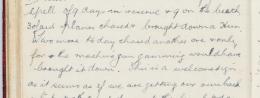 spell of 9 days in reserve & 9 on the beach
3 of our planes chased & brought down a Hun.
Two more to day chased another one & only
for the machine gun jamming would have
brought it down. This is a welcome sign
as it seems as if we are getting our own back